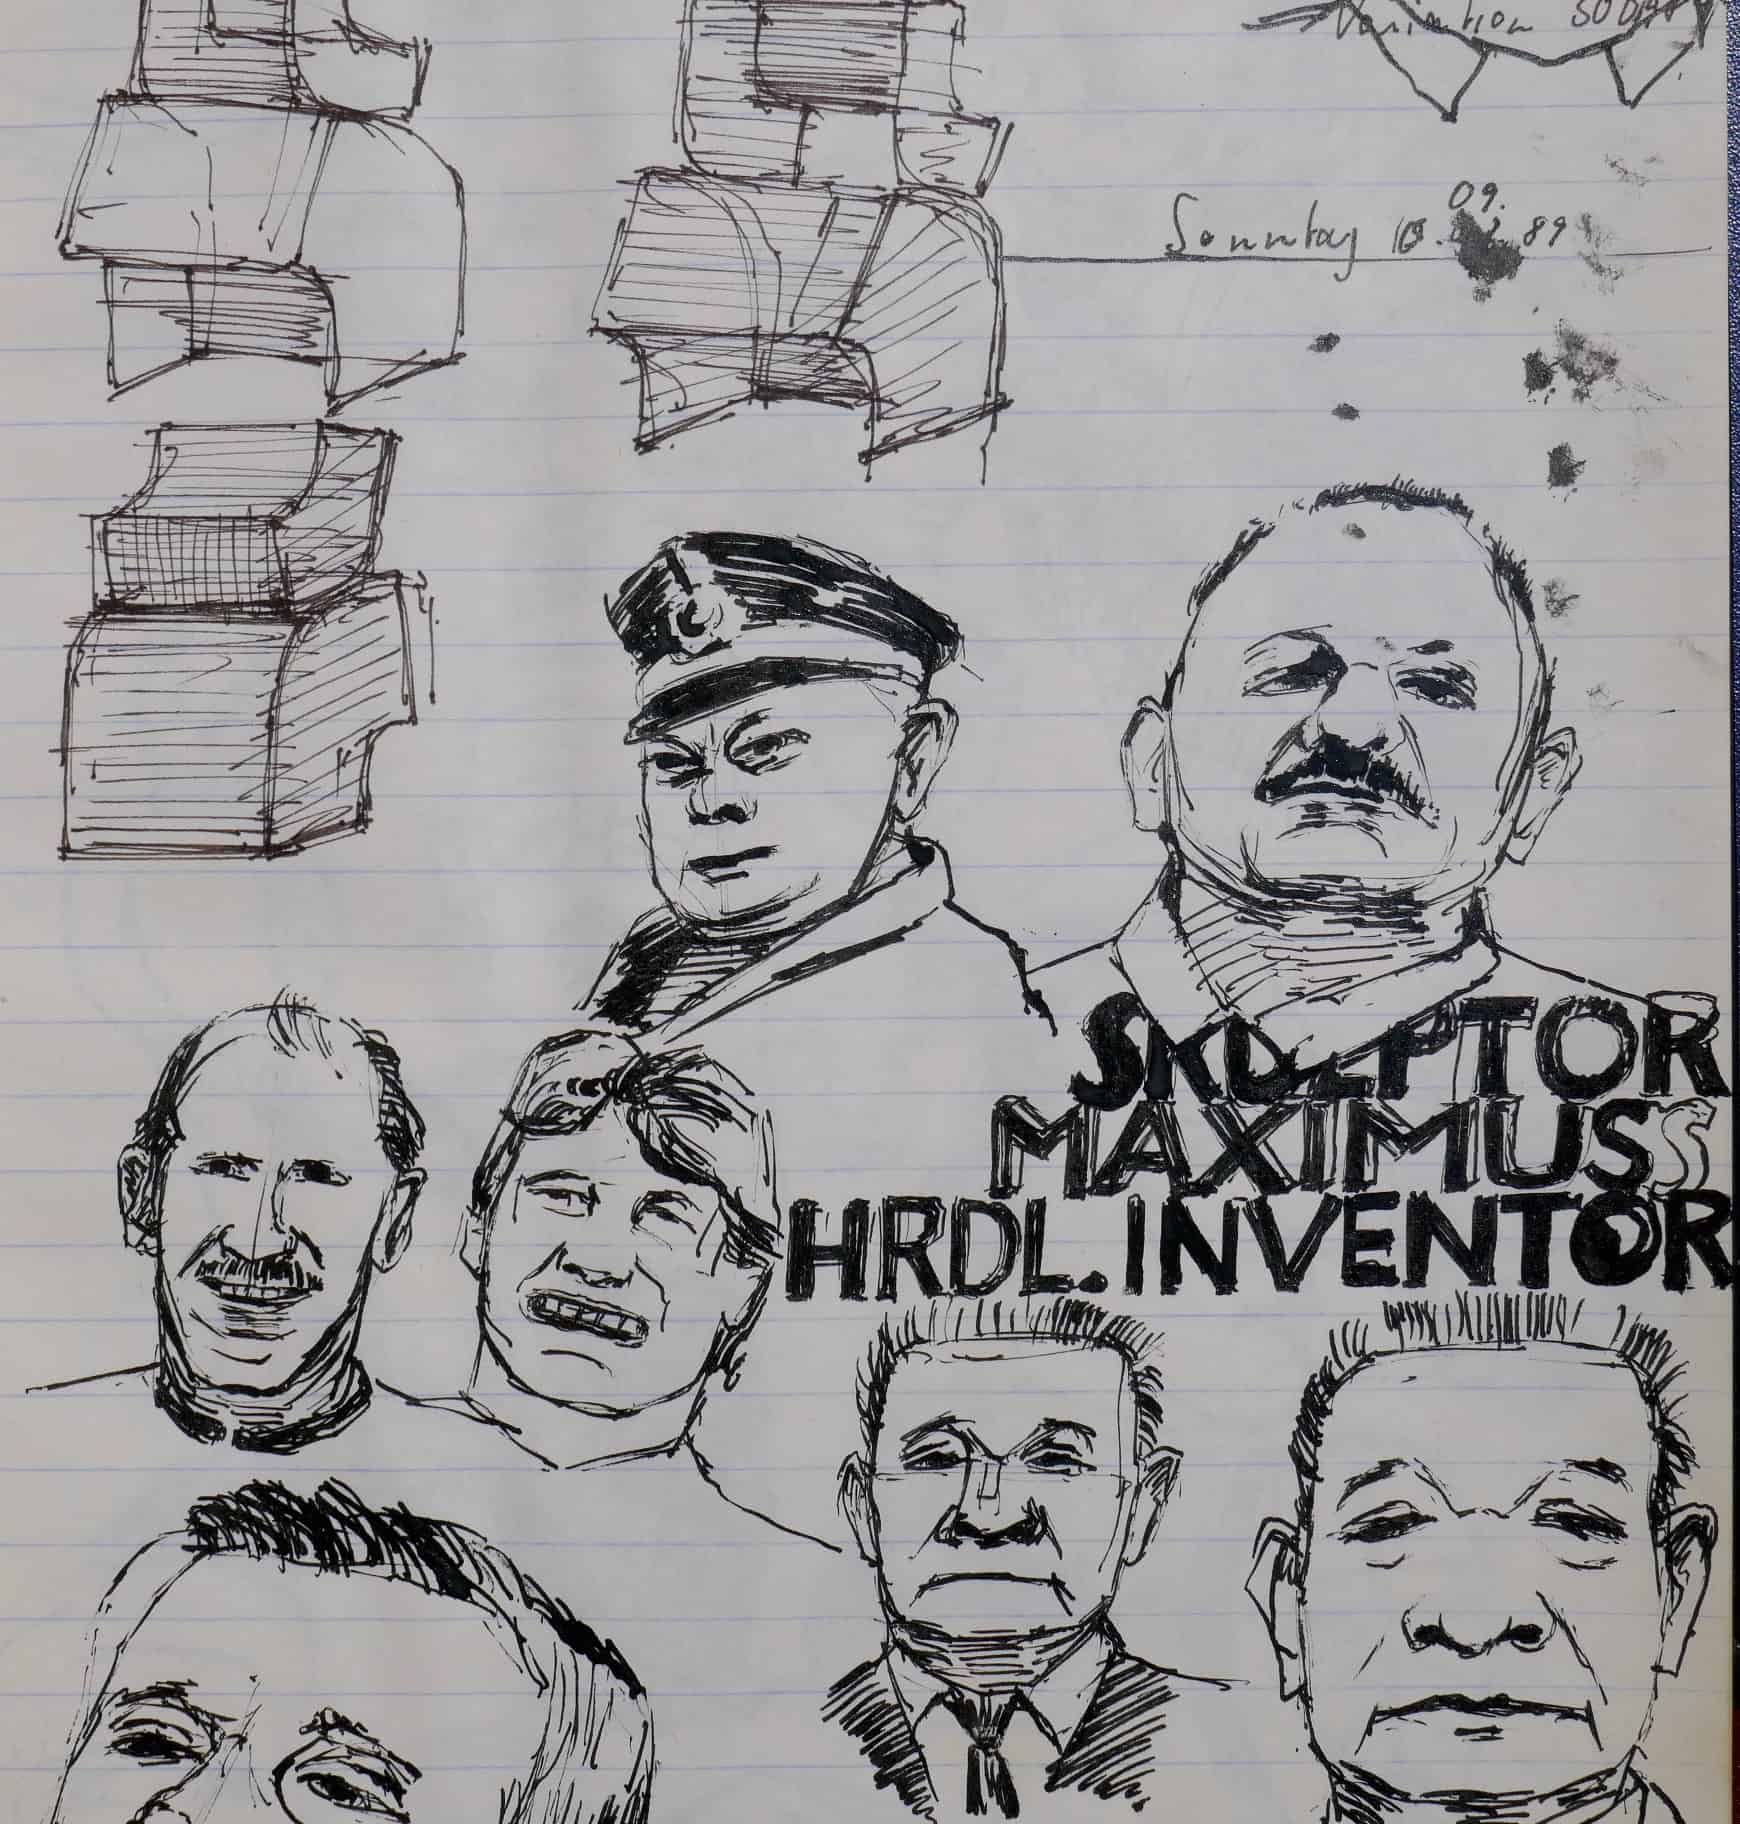 Variation
09.
Sonntag 10. 89
SKULPTOR
MAXIMUSS
HRDL. INVENTOR